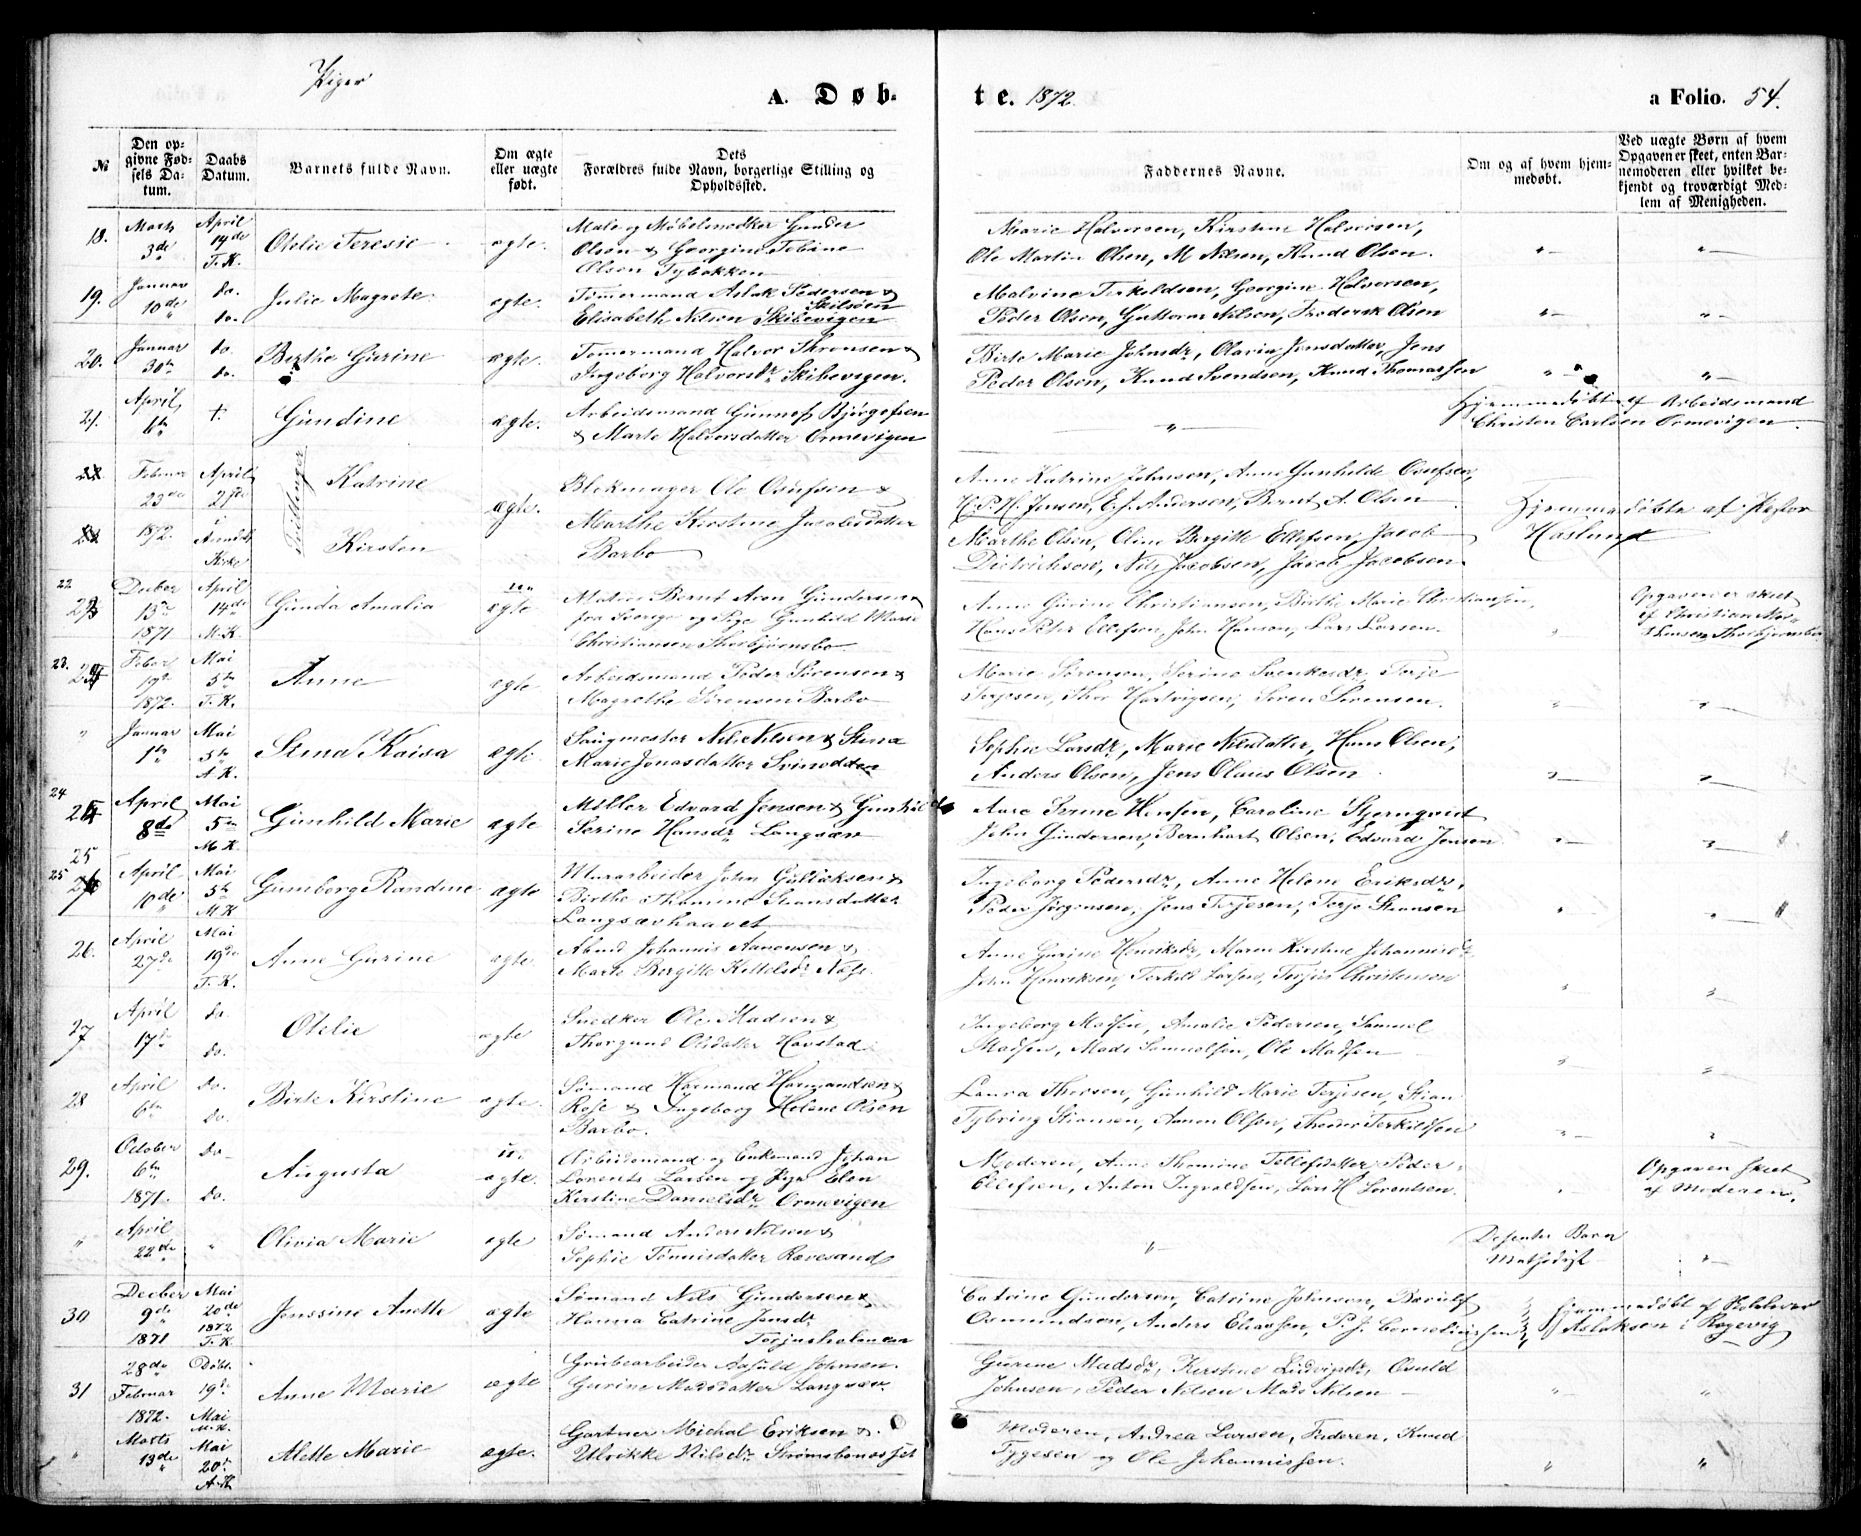 Piger
A. Døb-
te. 1872.
a Folio. 54.
№
Den op-
givne Fød-
sels Da-
tum.
Daabs
Datum.
Barnets fulde Navn.
Om ægte
eller uægte
født.
Dets
Forældres fulde Navn, borgerlige Stilling og
Opholdssted.
Faddernes Navne.
Om og af hvem hjem-
medøbt.
Ved uægte Børn af hvem
Opgaven er skeet, enten Bar-
nemoderen eller hvilket be-
kjendt og troværdigt Med-
lem af Menigheden.
18.
Marts
3de
April
14de
T. K.
Otelie Teresie
ægte.
Male og Møbelsnedker Gunder
Olsen & Georgine Tobine
Olsen Tybakken
Marie Halvorsen, Kirstine Halvorsen,
Ole Martin Olsen, M Nilsen, Knud Olsen.
19.
Januar
10de
do.
do.
Julie Magrete
ægte.
Tømermand Aslak Pedersen &
Elisabeth Nilsen Skibevigen
Skilsøen
Malvine Terkeldsen, Georgine Halvorsen,
Peder Olsen, Guttorm Nilsen, Frederik Olsen
20.
Januar
30te
do
do.
Berthe Gurine
ægte.
Tømermand Halvor Thronsen &
Ingeborg Halvorsdr Skibevigen.
Birte Marie Johnsdr, Olavia Jensdatter, Jens
Peder Olsen, Knud Svendsen, Knud Thomassen
21.
April
6te
t.
Gundine
ægte.
Arbeidsmand Gunnof Bjørgofsen
& Marte Halvorsdatter Ormevigen
Hjemmedøbt af Arbeidsmand
Christen Carlsen Ormevigen.
Februar
23de
1872.
April
21de
i
Arendals
Kirke
Tvillinger
Katrine
Kirsten
ægte.
Blikmager Ole Osufsen &
Marthe Kirstine Jacobsdatter
Barbo
Anne Katrine Johnsen, Anne Gunhilde Osufsen,
H. P. H. Jensen, E. J. Andersen, Bernt A. Olsen
Marthe Olsen, Oline Bergitte Ellefsen, Jacob
Diedrichsen, Nils Jacobsen, Jacob Jacobsen.
Hjemmedøbte af Pastor
Haslund
22
Decber
13de
1871
April
14de
M. K.
Gunda Amalia
uægte
Matros Bernt Aron Gundersen
fra Sverige og Pige Gunhild Marie
Christiansen Thorbjørnsbo
Anne Gurine Christiansen, Birthe Marie Christiansen,
Hans Peter Ellefsen, John Hansen, Lars Larsen.
Opgaven er skeet
af Christian Mor-
tensen Thorbjørnsbo
23.
Febar
19de
1872.
Mai
5te
T. K.
Anne
ægte
Arbeidsmand Peder Sørensen &
Magrethe Sørensen Barbo
Marie Sørensen, Serine Svenkesdr, Terje
Terjesen, Thor Hartvigsen, Søren Sørensen.
Januar
1te
Mai
5te
A. K.
Stina Kaisa
ægte
Saugmester Nils Nilsen & Stina
Marie Jonasdatter Svinodden
Sophie Larsdr, Marie Nilsdatter, Hans Olsen,
Anders Olsen, Jens Olaus Olsen.
24
April
8de
Mai
5te
M. K.
Gunhild Marie
ægte
Møller Edvard Jensen & Gunhild
Serine Hansdr Langsæv
Aase Serine Hansen, Caroline Stjernqvist
John Gundersen, Bernhart Olsen, Edvard Jensen
25
25
April
10de
Mai
5te
M K
Gumborg Randine
ægte
Murarbeider John Gullaksen &
Birthe Thomine Stiansdatter
Langsævhaavet
Ingeborg Pedersdr, Anne Helene Eriksdr,
Peder Jørgensen, Jens Terjesen, Terje Stiansen
26.
April
27de
Mai
19de
T. K.
Anne Gurine
ægte.
Abmd Johannis Aanonsen &
Marte Bergitte Kittelsdr Næs.
Anne Gurine Henriksdr, Maren Kirstine Johannisdr
John Henriksen, Terkild Larsen, Terjus Christensen
27
April
17de
do.
do.
Otelie
ægte
Snedker Ole Madsen &
Thorgund Olsdatter Havstad
Ingeborg Madsen, Amalie Pedersen, Samuel
Madsen, Mads Samuelsen, Ole Madsen
28
April
6te
do.
do.
Birte Kirstine
ægte.
Sømand Harmand Harmandsen
Rose & Ingeborg Helene Olsen
Barbo.
Laura Thorsen, Gunhild Marie Terjesen, Stian
Tybring Stiansen, Aanon Olsen, Theodor Terkildsen
29.
October
6te
1871.
do
do.
Augusta
uægte.
Arbeidsmand og Enkemand Johan
Lorents Larsen og Pige Elen
Kirstine Danielsdr Ormevigen
Moderen, Anne Thomine Tellefsdatter, Peder
Ellefsen, Anton Ingvaldsen, Lars H Lorentsen.
Opgaven skeet
af Moderen.
April
22de
Olivia Marie
ægte
Sømand Anders Nilsen &
Sophie Tønnisdatter Rævesand
Desenter Barn
Methodist
30
Decber
9de
1871
Mai
20de
1872
T. K.
Jenssine Anette
ægte
Sømand Nils Gundersen &
Hanna Catrine Jensdr
Torjusholmen
Catrine Gundersen, Catrine Johnsen, Bærulf
Osmundsen, Anders Eliassen, P. J. Corneliussen
Hjemmedøbt af Skolelærer
Aslaksen i Røgevig
31
28de
Februar
1872.
Døbt
19de
Mai
M. K.
Anne Marie
ægte
Grubearbeider Aasuld Johnsen
Gurine Madsdatter Langsæv
Gurine Madsdr, Kirstine Ludvigsdr, Osuld
Johnsen, Peder Nilsen Mads Nilsen
Marts
13de
Mai
20de
A K
Alette Marie
ægte.
Gartner Michal Eriksen &
Ulrikke Nilsdr Strømsbonæsset
Moderen, Andrea Larsen, Faderen, Knud
Tygesen og Ole Johannissen.